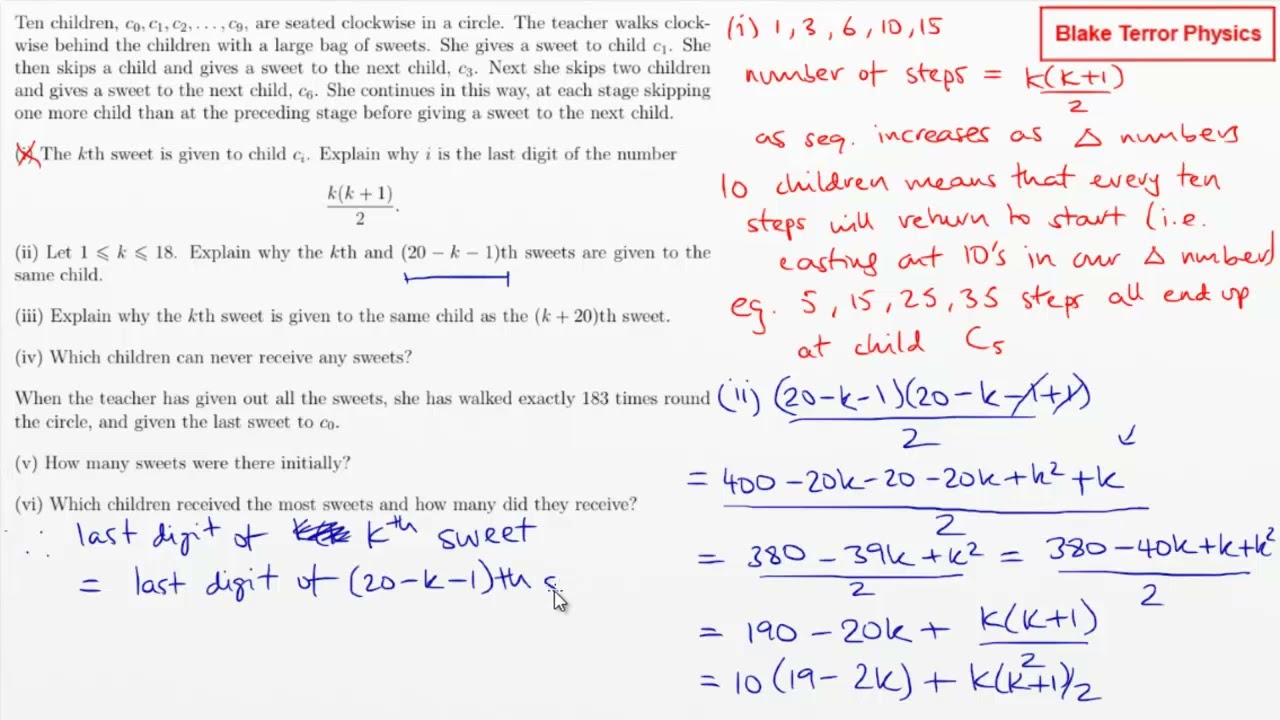 Ten children, c₀, c₁, c₂, . . . , c₉, are seated clockwise in a circle. The teacher walks clock-
wise behind the children with a large bag of sweets. She gives a sweet to child c₁. She
then skips a child and gives a sweet to the next child, c₃. Next she skips two children
and gives a sweet to the next child, c₆. She continues in this way, at each stage skipping
one more child than at the preceding stage before giving a sweet to the next child.
The kth sweet is given to child cᵢ. Explain why i is the last digit of the number
k(k + 1)
2
.
(ii) Let 1 ⩽ k ⩽ 18. Explain why the kth and (20 − k − 1)th sweets are given to the
same child.
(iii) Explain why the kth sweet is given to the same child as the (k + 20)th sweet.
(iv) Which children can never receive any sweets?
When the teacher has given out all the sweets, she has walked exactly 183 times round
the circle, and given the last sweet to c₀.
(v) How many sweets were there initially?
(vi) Which children received the most sweets and how many did they receive?
∴ last digit of kth sweet
= last digit of (20-k-1)th s
Blake Terror Physics
(i) 1, 3, 6, 10, 15
number of steps = k(k+1)
2
as seq. increases as Δ numbers
10 children means that every ten
steps will return to start (i.e.
casting out 10's in our Δ numbers)
eg. 5, 15, 25, 35 steps all end up
at child C₅
(ii) (20-k-1)(20-k-1+1)
2
= 400-20k-20-20k+k²+k
2
= 380-39k+k² = 380-40k+k+k²
2 2
= 190-20k+ k(k+1)
2
= 10(19-2k)+k(k+1)/2